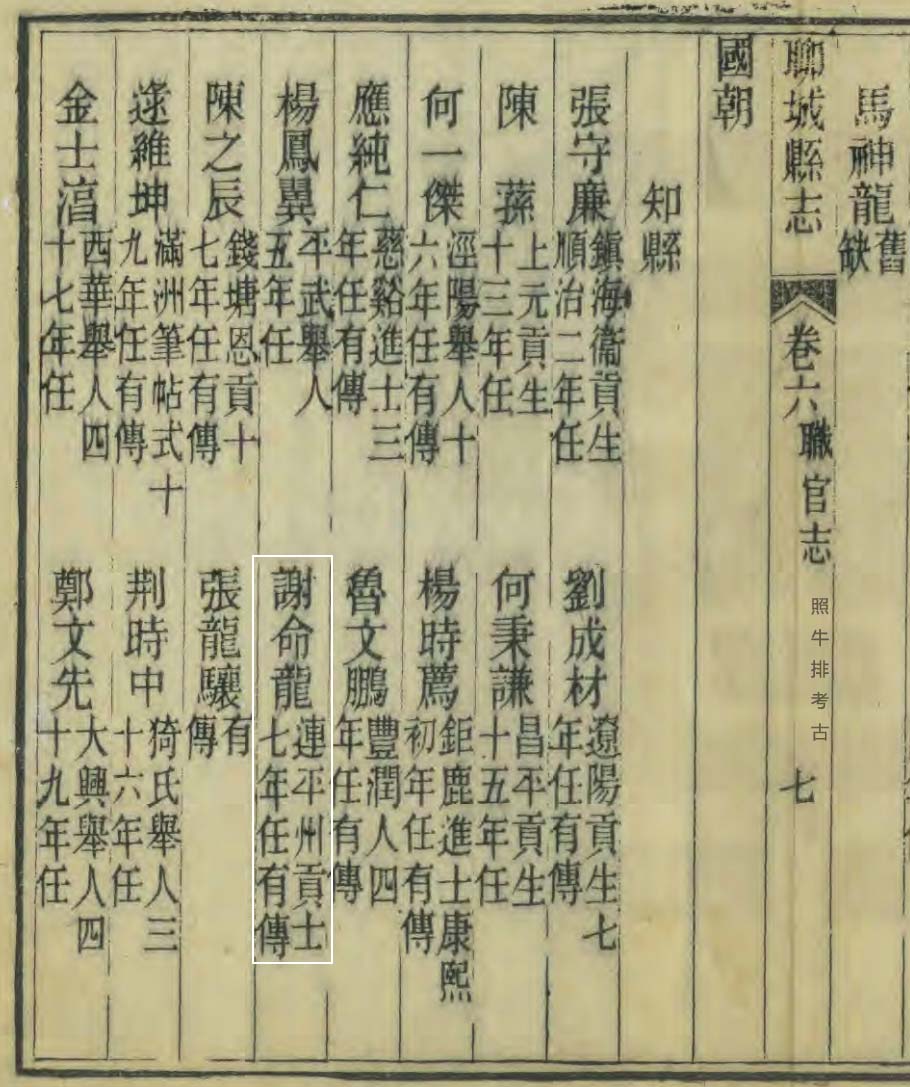 馬神龍舊缺
聊城縣志
卷六職官志
七
國朝
知縣
張守廉鎮海衞貢生順治二年任
劉成材遼陽貢生七年任有傳
陳蓀上元貢生十三年任
何秉謙昌平貢生十五年任
何一傑涇陽舉人十六年任有傳
楊時薦鉅鹿進士康熙初年任有傳
應純仁慈谿進士三年任有傳
魯文鵬豐潤人四年任有傳
楊鳳翼平武舉人五年任
謝命龍連平州貢士七年任有傳
陳之辰錢塘恩貢十七年任有傳
張龍驤有傳
逯維坤滿洲筆帖式十九年任有傳
荆時中猗氏舉人三十六年任
金士湻西華舉人四十七年任
鄭文先大興舉人四十九年任
照牛排考古